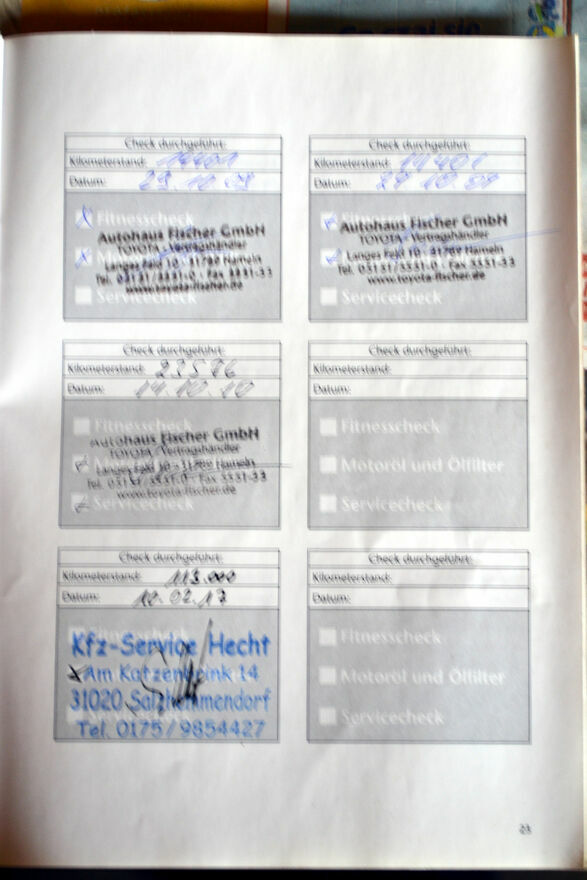 Check durchgeführt:
Kilometerstand: 14401
Datum: 10.
Fitnesscheck
Autohaus Fischer GmbH
TOYOTA - Vertragshändler
Langes Feld 10 - 31789 Hameln
Tel. 05151/5551-0 - Fax 5551-33
www.toyota-fischer.de
Servicecheck
Check durchgeführt:
Kilometerstand: 14401
Datum: 10.
Autohaus Fischer GmbH
TOYOTA - Vertragshändler
Langes Feld 10 - 31789 Hameln
Tel. 05151/5551-0 - Fax 5551-33
www.toyota-fischer.de
Servicecheck
Check durchgeführt:
Kilometerstand: 23576
Datum: 14.10.10
Fitnesscheck
Autohaus Fischer GmbH
TOYOTA - Vertragshändler
Langes Feld 10 - 31789 Hameln
Tel. 05151/5551-0 - Fax 5551-33
www.toyota-fischer.de
Servicecheck
Check durchgeführt:
Kilometerstand:
Datum:
Fitnesscheck
Motoröl und Ölfilter
Servicecheck
Check durchgeführt:
Kilometerstand: 113.000
Datum: 10.02.17
Kfz-Service Hecht
Am Katzenbrink 14
31020 Salzhemmendorf
Tel. 0175/9854427
Check durchgeführt:
Kilometerstand:
Datum:
Fitnesscheck
Motoröl und Ölfilter
Servicecheck
23